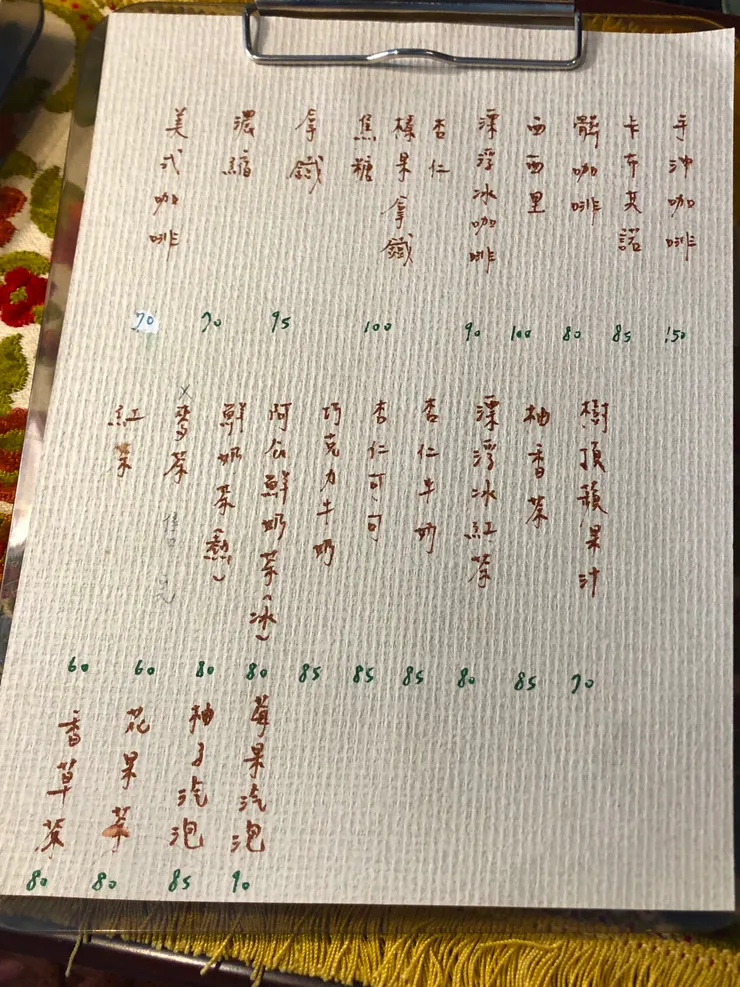 美式咖啡
70
濃縮
70
拿鐵
95
焦糖
榛果
杏仁
拿鐵
100
漂浮冰咖啡
90
西西里
100
髒咖啡
80
卡布其諾
85
手沖咖啡
150
紅茶
60
×麥茶
售完
60
鮮奶茶(熱)
80
阿鮮奶茶(冰)
80
巧克力牛奶
85
杏仁可可
85
杏仁牛奶
85
漂浮冰紅茶
80
柚香茶
85
樹頂蘋果汁
70
香草茶
80
花果茶
80
柚子汽泡
85
莓果汽泡
90